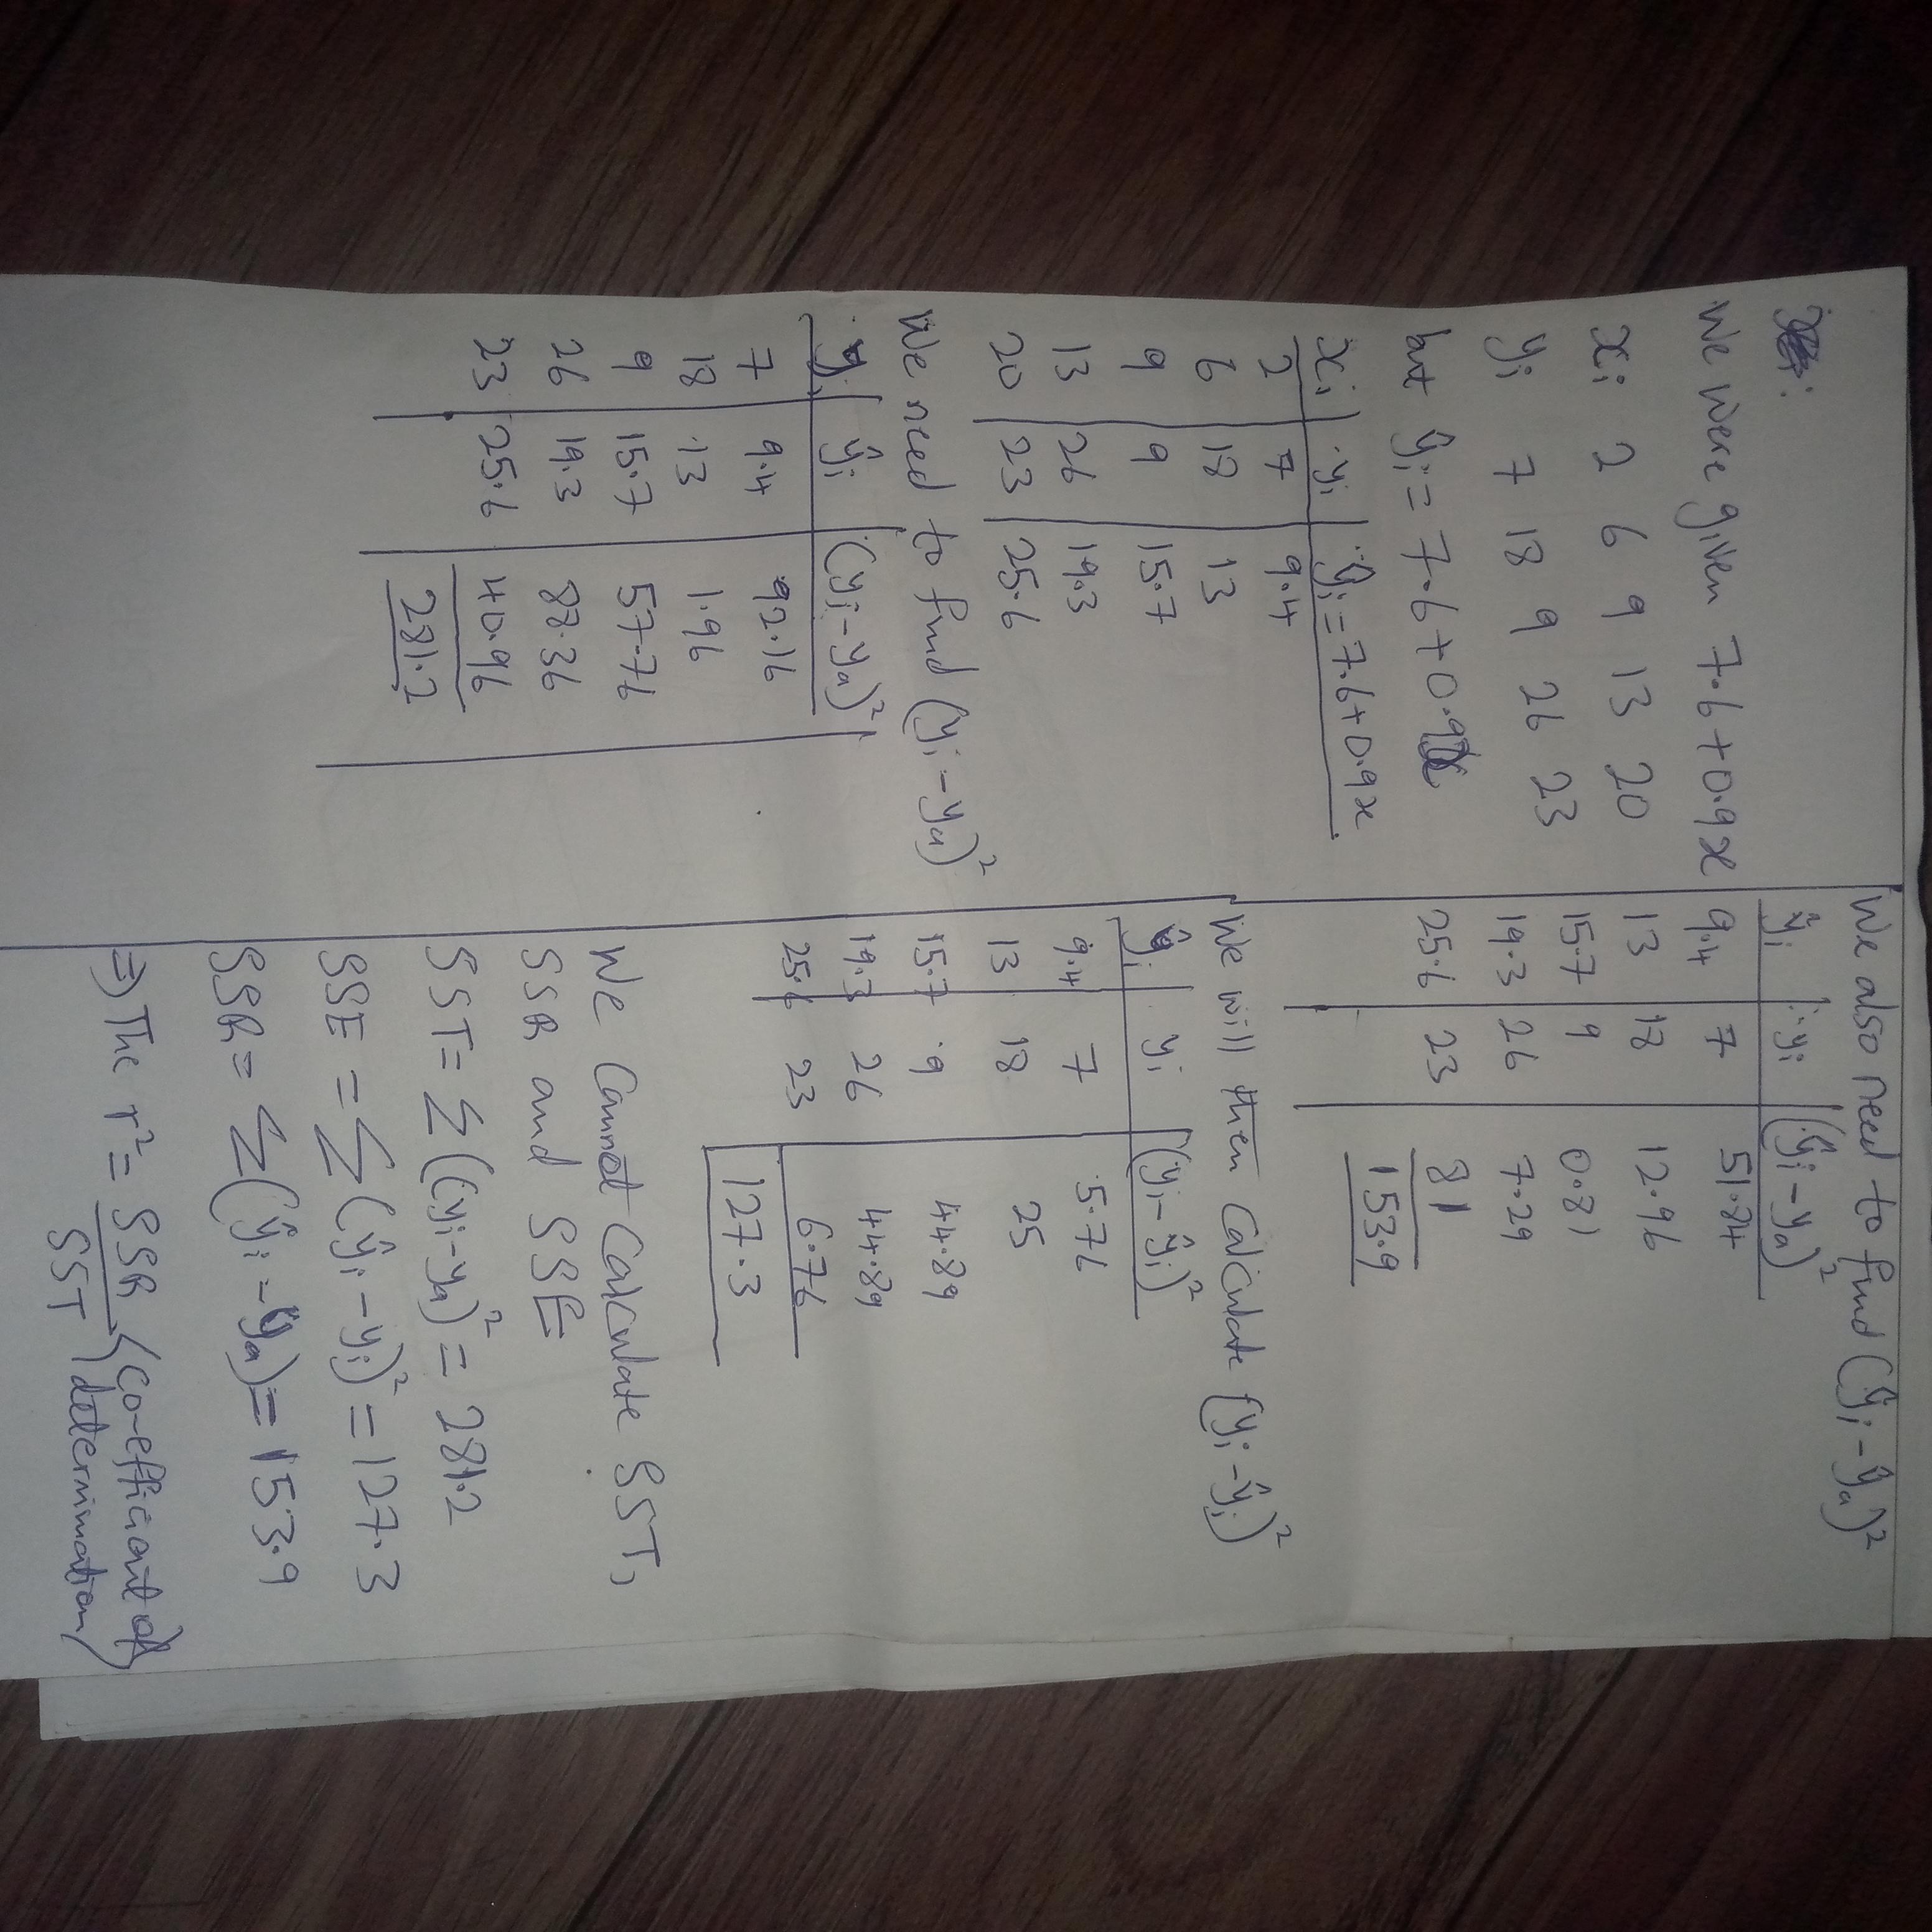 We were given 7.6+0.9x
xi 2 6 9 13 20
yi 7 18 9 26 23
but ŷi = 7.6+0.9x
xi yi ŷi=7.6+0.9x
2 7 9.4
6 18 13
9 9 15.7
13 26 19.3
20 23 25.6
We need to find (yi-ya)²
yi ŷi (yi-ya)²
7 9.4 92.16
18 13 1.96
9 15.7 57.76
26 19.3 88.36
23 25.6 40.96
281.2
We also need to find (ŷi-ya)²
ŷi yi (ŷi-ya)²
9.4 7 51.84
13 18 12.96
15.7 9 0.81
19.3 26 7.29
25.6 23 81
153.9
We will then calculate (yi-ŷi)²
ŷi yi (yi-ŷi)²
9.4 7 5.76
13 18 25
15.7 9 44.89
19.3 26 44.89
25.6 23 6.76
127.3
We Cannot Calculate SST,
SSR and SSE
SST= Σ(yi-ya)² = 281.2
SSE = Σ(ŷi-yi)² = 127.3
SSR = Σ(ŷi-ya) = 153.9
⇒ The r² = SSR/SST (co-efficient of
determination)